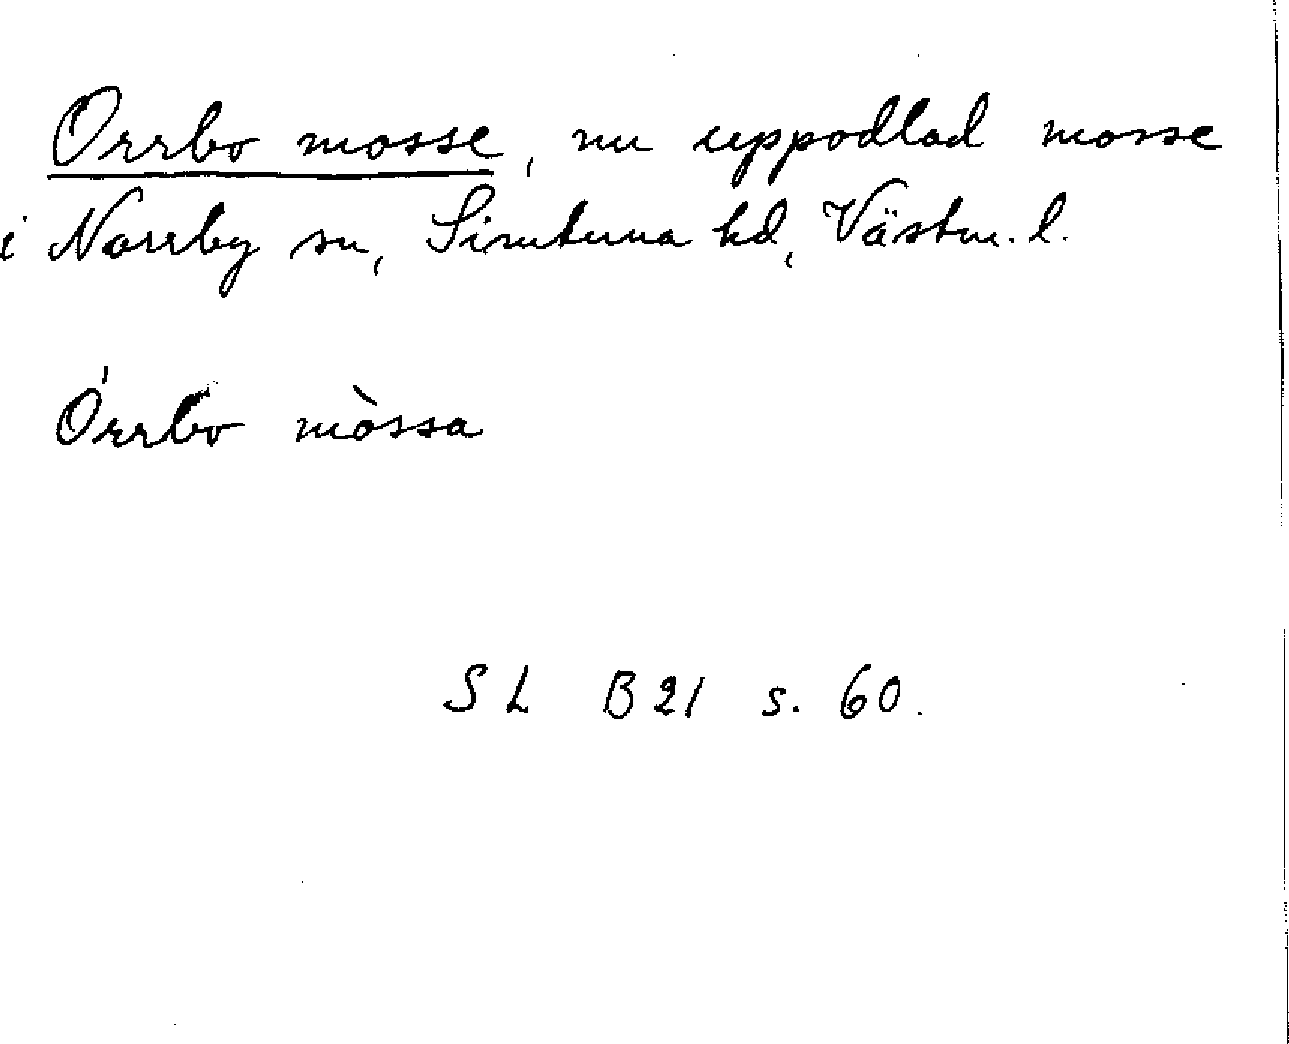 Orrbo mosse, nu uppodlad mosse
i Norrby sn, Simtuna hd, Västm. l.
Órrbo mòssa
SL B21 s. 60.